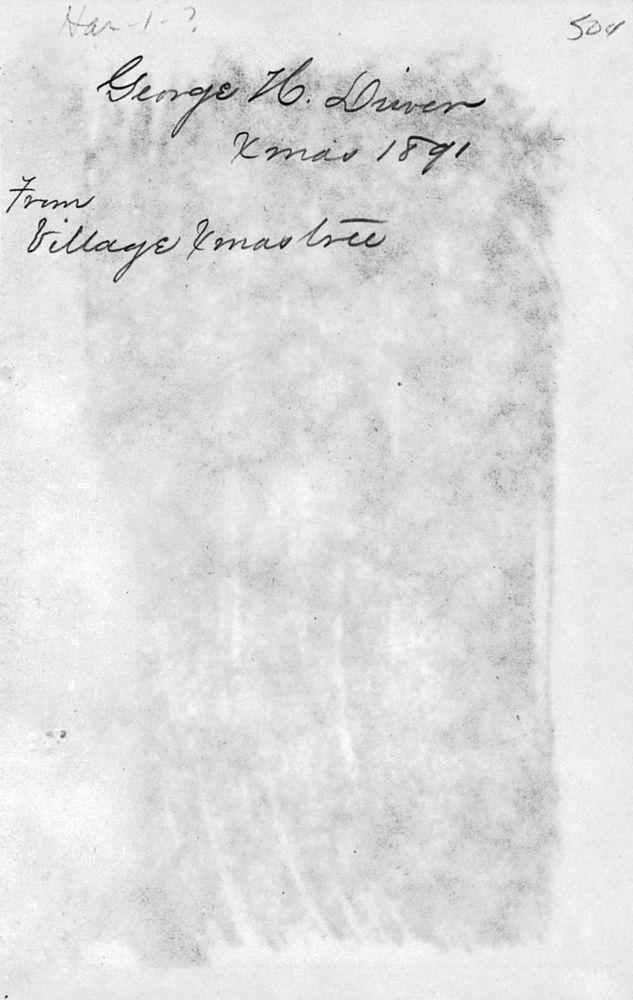 504
George H. Driver
Xmas 1891
From
Village Xmas tree